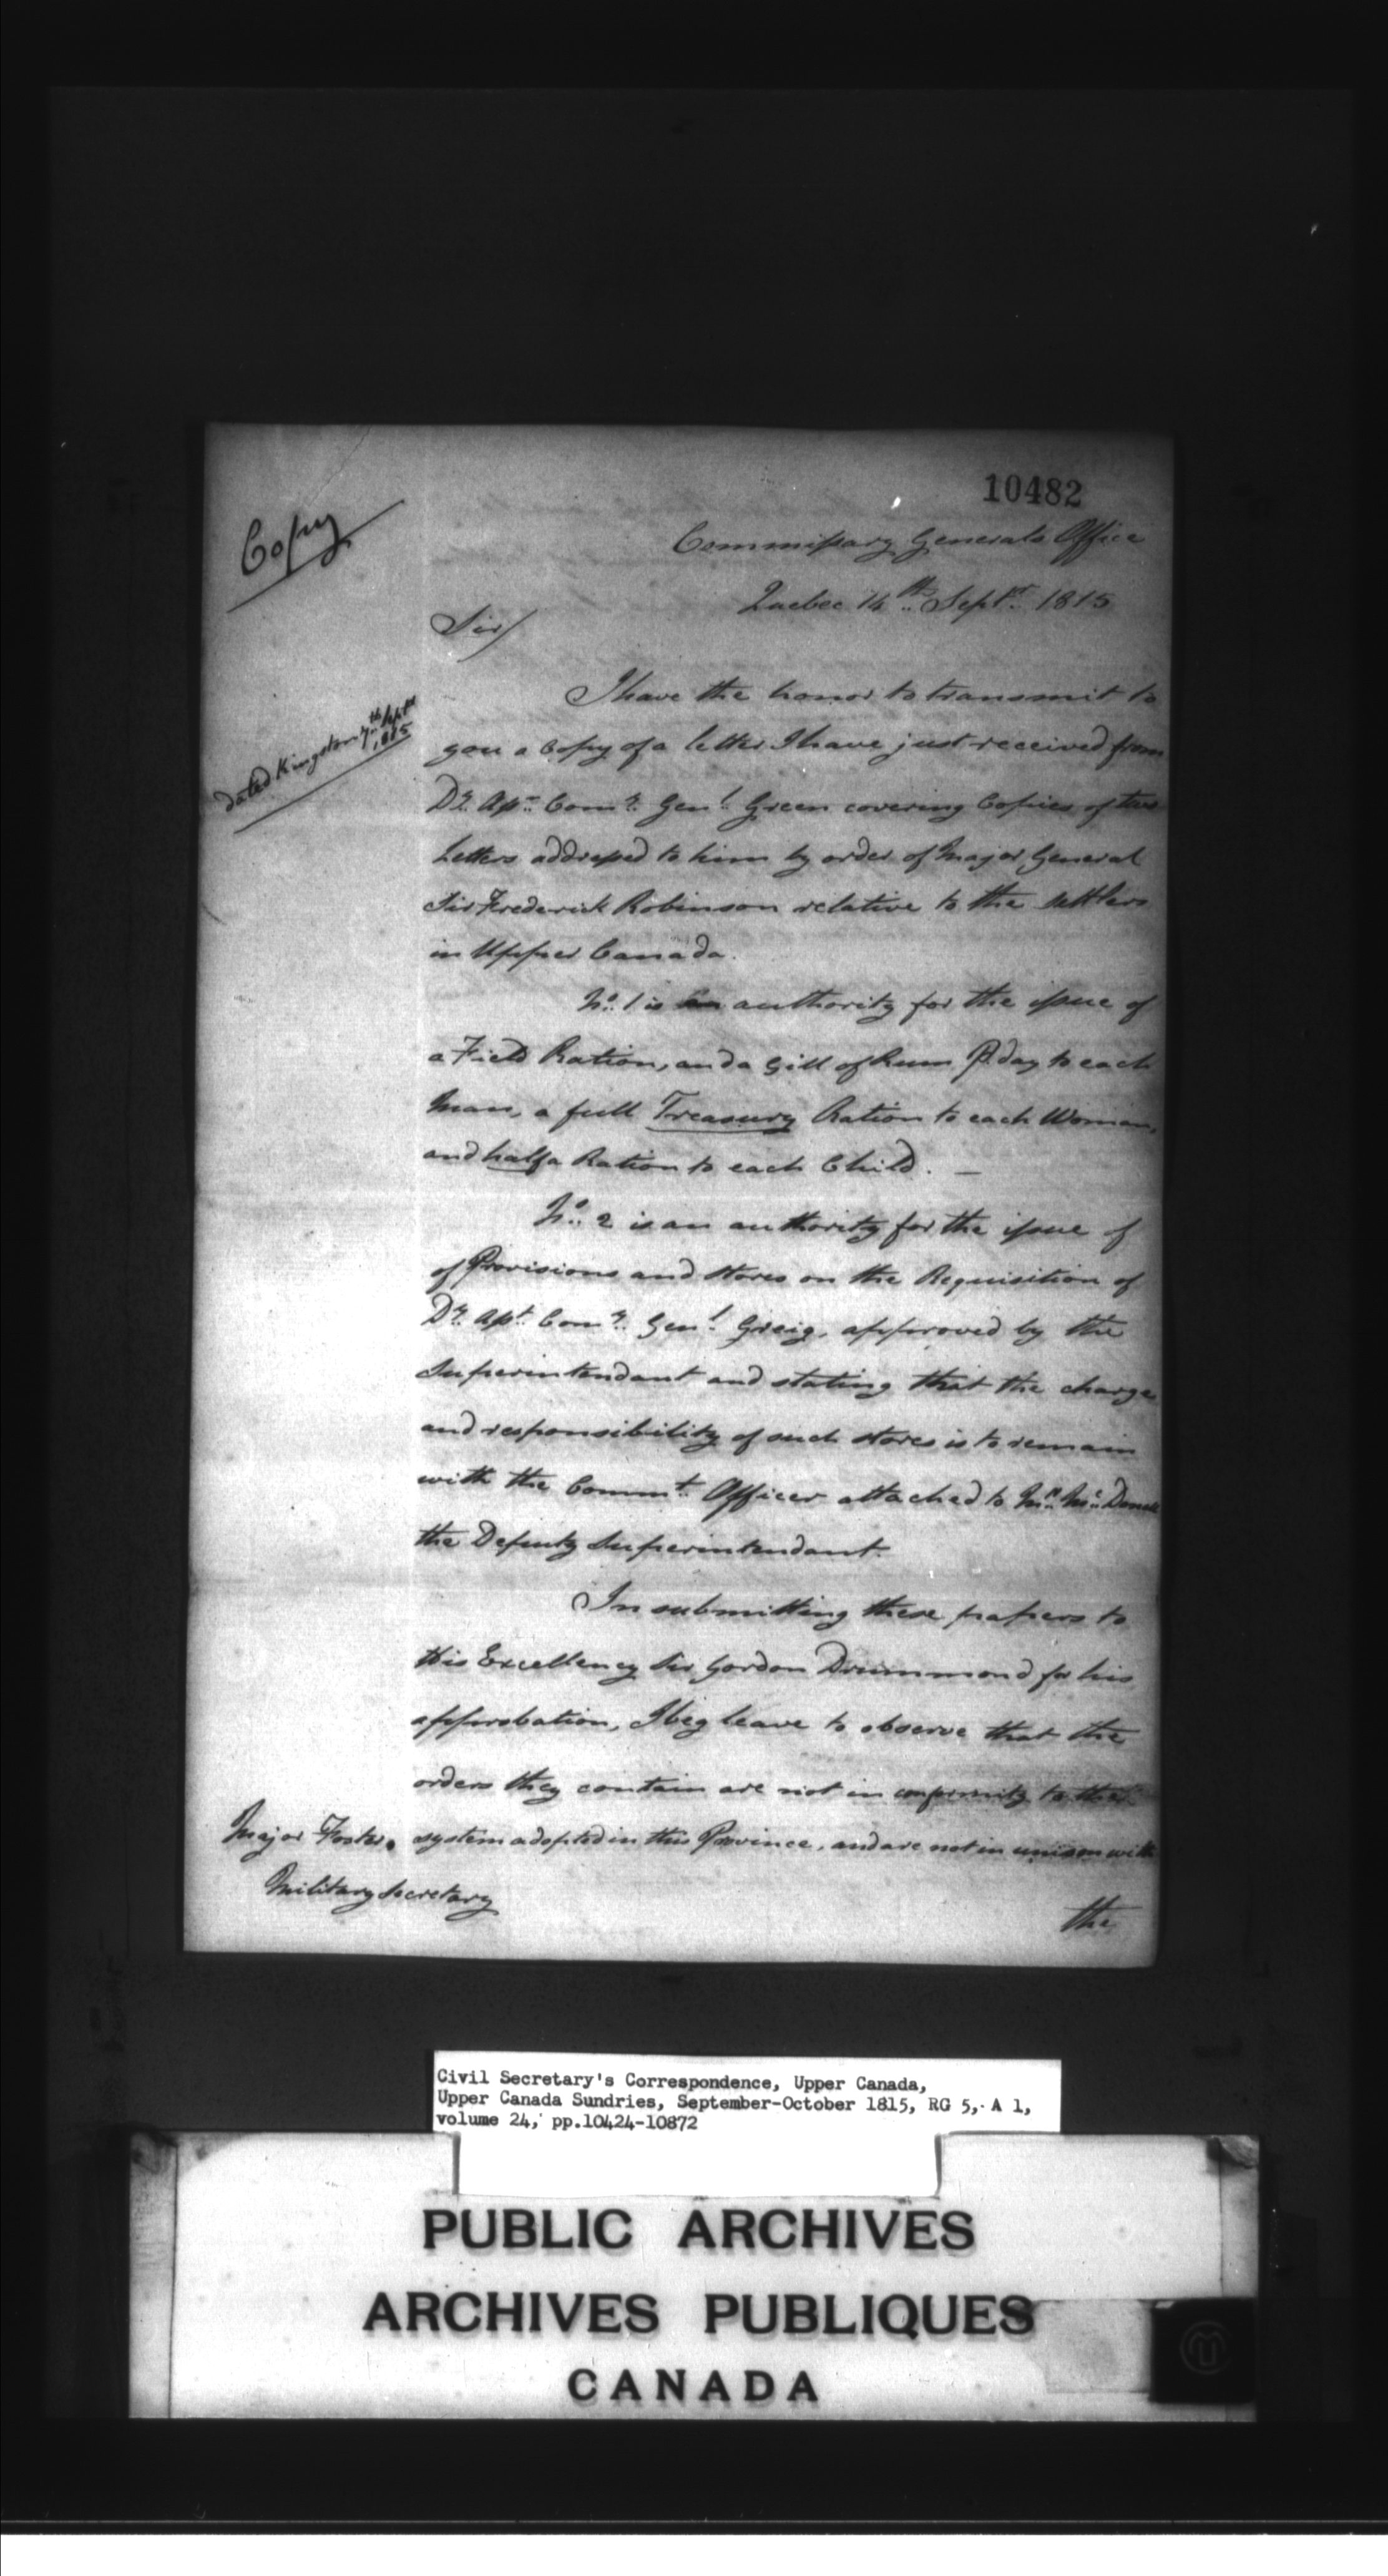 10482
Copy
Commissary Generals Office
Quebec 14th Septr. 1815
Sir/
dated Kingston 7th Septr
1815
I have the honor to transmit to
you a Copy of a letter I have just received from
Dy. Asst. Comy. Genl. Green covering Copies of two
Letters addressed to him by order of Major General
Sir Frederick Robinson relative to the settlers
in Upper Canada.
No. 1 is an authority for the issue of
a Field Ration, and a Gill of Rum P. day to each
Man, a full Treasury Ration to each Woman,
and half a Ration to each Child. —
No. 2 is an authority for the issue of
of Provisions and Stores on the Requisition of
Dy. Asst. Comy. Genl. Greig, approved by the
Superintendant and stating that the charge
and responsibility of such stores is to remain
with the Commt. Officer attached to Mr. Mc. Donell
the Deputy Superintendant.
In submitting these papers to
His Excellency Sir Gordon Drummond for his
approbation, I beg leave to observe that the
orders they contain are not in conformity to the
system adopted in this Province, and are not in unison with
Major Foster
Military Secretary
the
Civil Secretary's Correspondence, Upper Canada,
Upper Canada Sundries, September-October 1815, RG 5, A 1,
volume 24, pp.10424-10872
PUBLIC ARCHIVES
ARCHIVES PUBLIQUES
CANADA